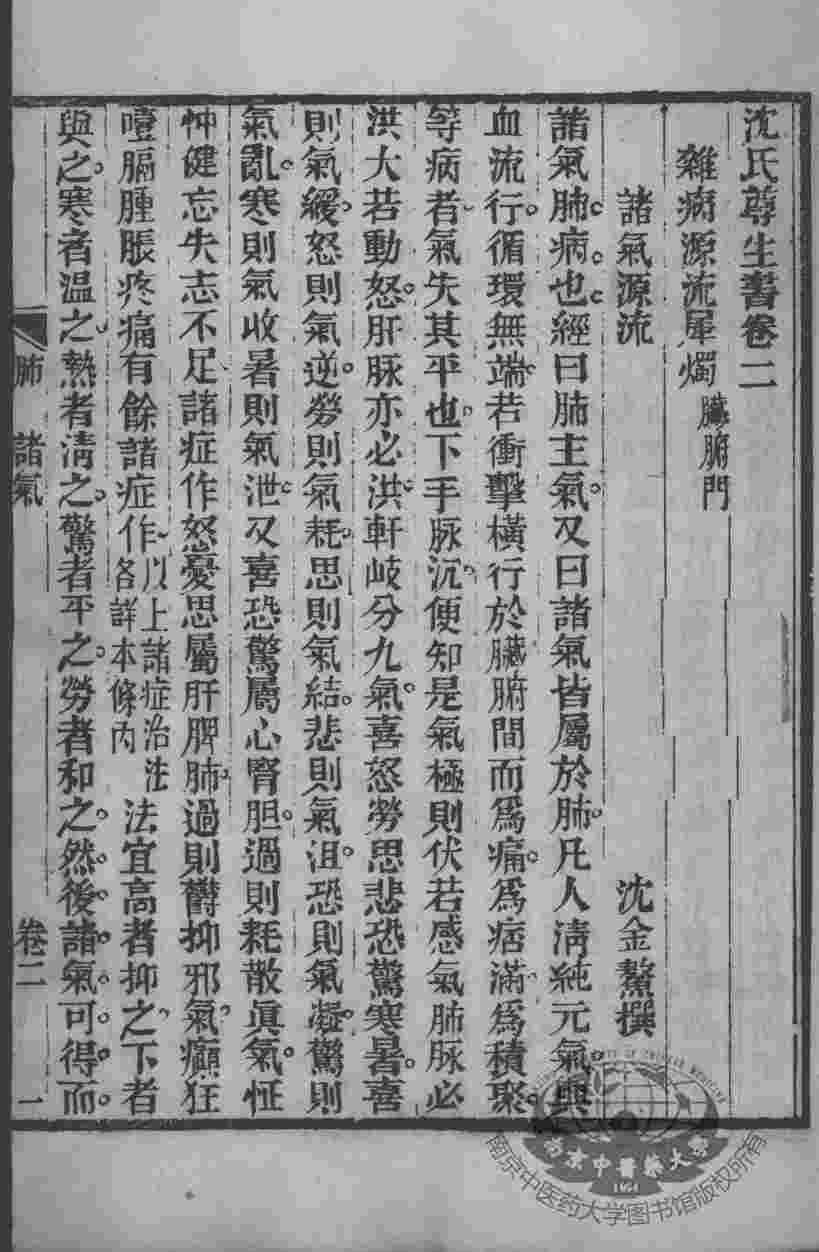 沈氏尊生書卷二
雜病源流犀燭 臟腑門
諸氣源流 沈金鰲撰
諸氣肺病也經曰肺主氣又曰諸氣皆屬於肺凡人清純元氣與
血流行循環無端若衝擊橫行於臟腑間而為痛為痞滿為積聚
等病者氣失其平也下手脉沉便知是氣極則伏若感氣肺脉必
洪大若動怒肝脉亦必洪軒岐分九氣喜怒勞思悲恐驚寒暑喜
則氣緩怒則氣逆勞則氣耗思則氣結悲則氣沮恐則氣凝驚則
氣亂寒則氣收暑則氣泄又喜恐驚屬心腎胆過則耗散眞氣怔
忡健忘失志不足諸症作怒憂思屬肝脾肺過則鬱抑邪氣癲狂
噎膈腫脹疼痛有餘諸症作 以上諸症治法各詳本條內 法宜高者抑之下者
與之寒者溫之熱者清之驚者平之勞者和之然後諸氣可得而
肺 諸氣 卷二 一
南京中醫藥大學
1954
南京中医药大学图书馆版权所有